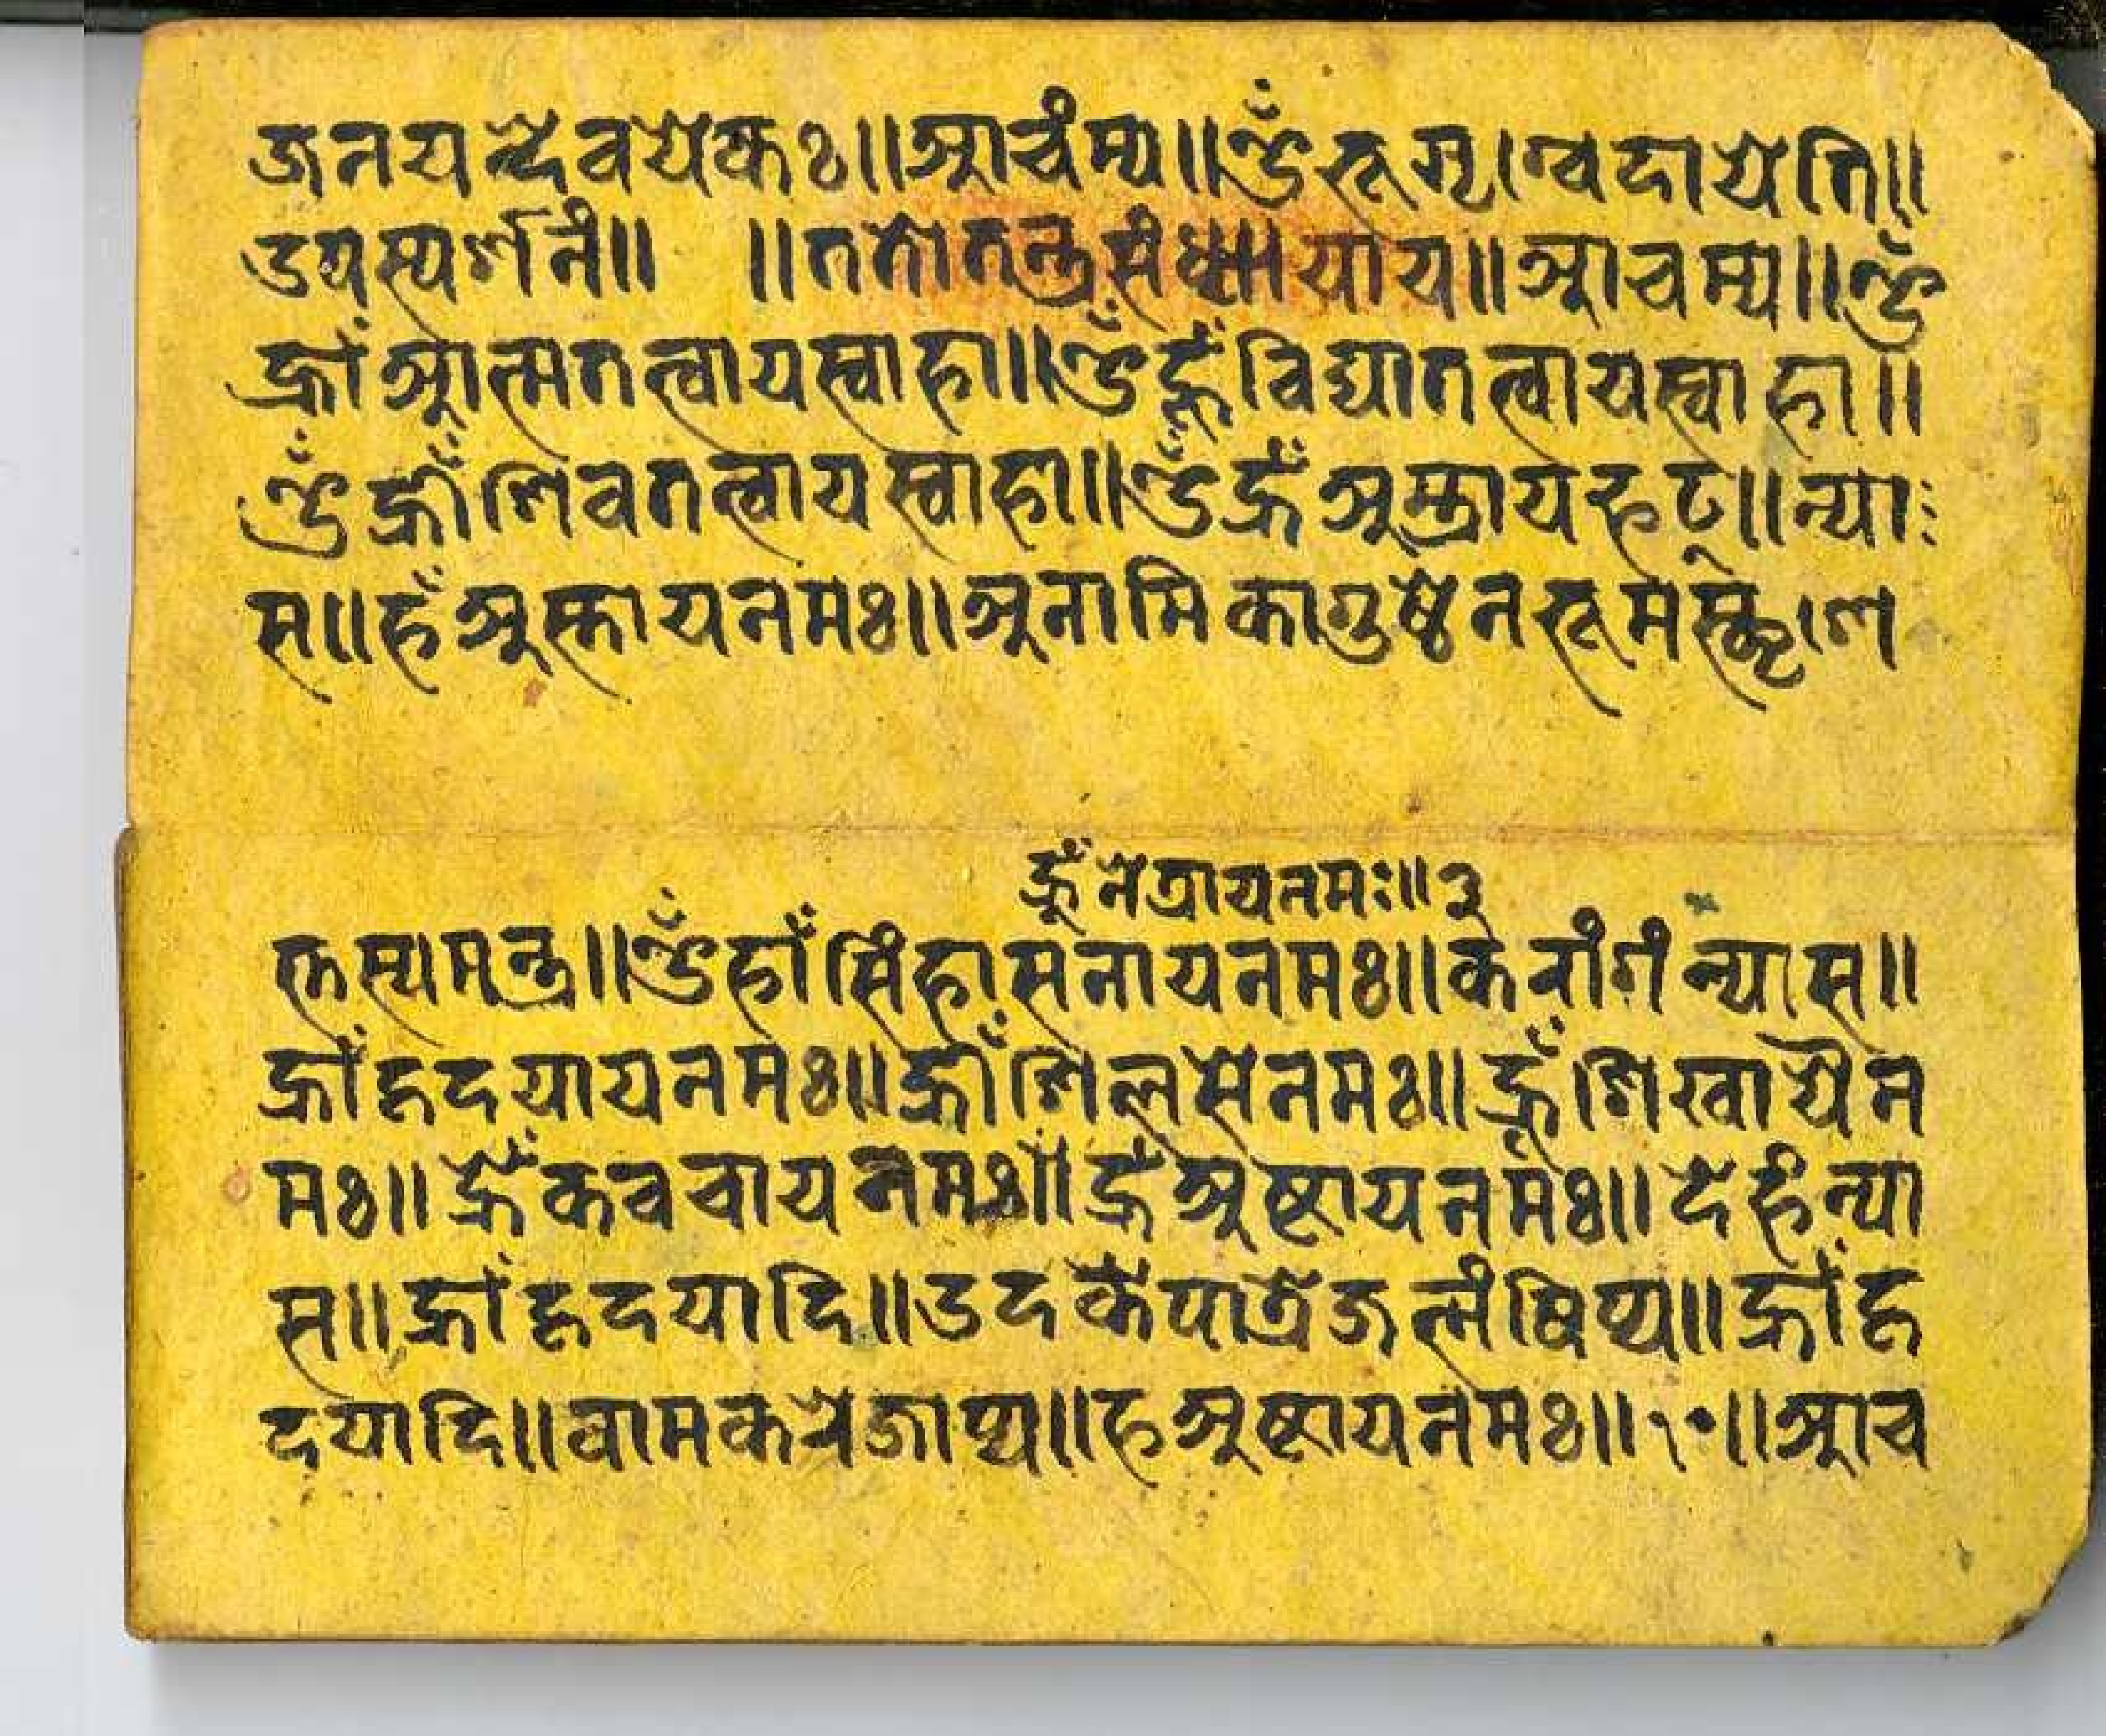 जनयन्देवयेकः॥आचंम्य॥ॐ ऋग्वदायेति॥
उपस्पर्शनं॥ ॥ततोतन्त्रसंध्यायाय॥आचम्य॥ॐ
ह्रां आत्मतत्वायस्वाहा॥ॐ ह्रूं विद्यातत्वायस्वाहा॥
ॐ ह्रौं शिवतत्वायस्वाहा॥ॐ ह्रँ अस्त्रायफट्॥न्या:
स॥हँ अस्त्रायनमः॥अनामिकागुष्ठेन
ह्रूँ नेत्रायनमः॥३
मन्त्र॥ॐ हाँ सिंहासनायनमः॥करांगंन्यास॥
ह्राँ हृदयायनमः॥ह्रीँ शिलसेनमः॥ह्रूँ शिखायैन
मः॥ह्रैँ कवचायनमः॥ह्रँ अष्टायनमः॥देहंन्या
स॥ह्राँ हृदयादि॥उदकंपात्रेजलंषिप्य॥ह्रां हृ
दयादि॥वामकरेजाप्य॥ह अष्टायनमः॥१०॥आच